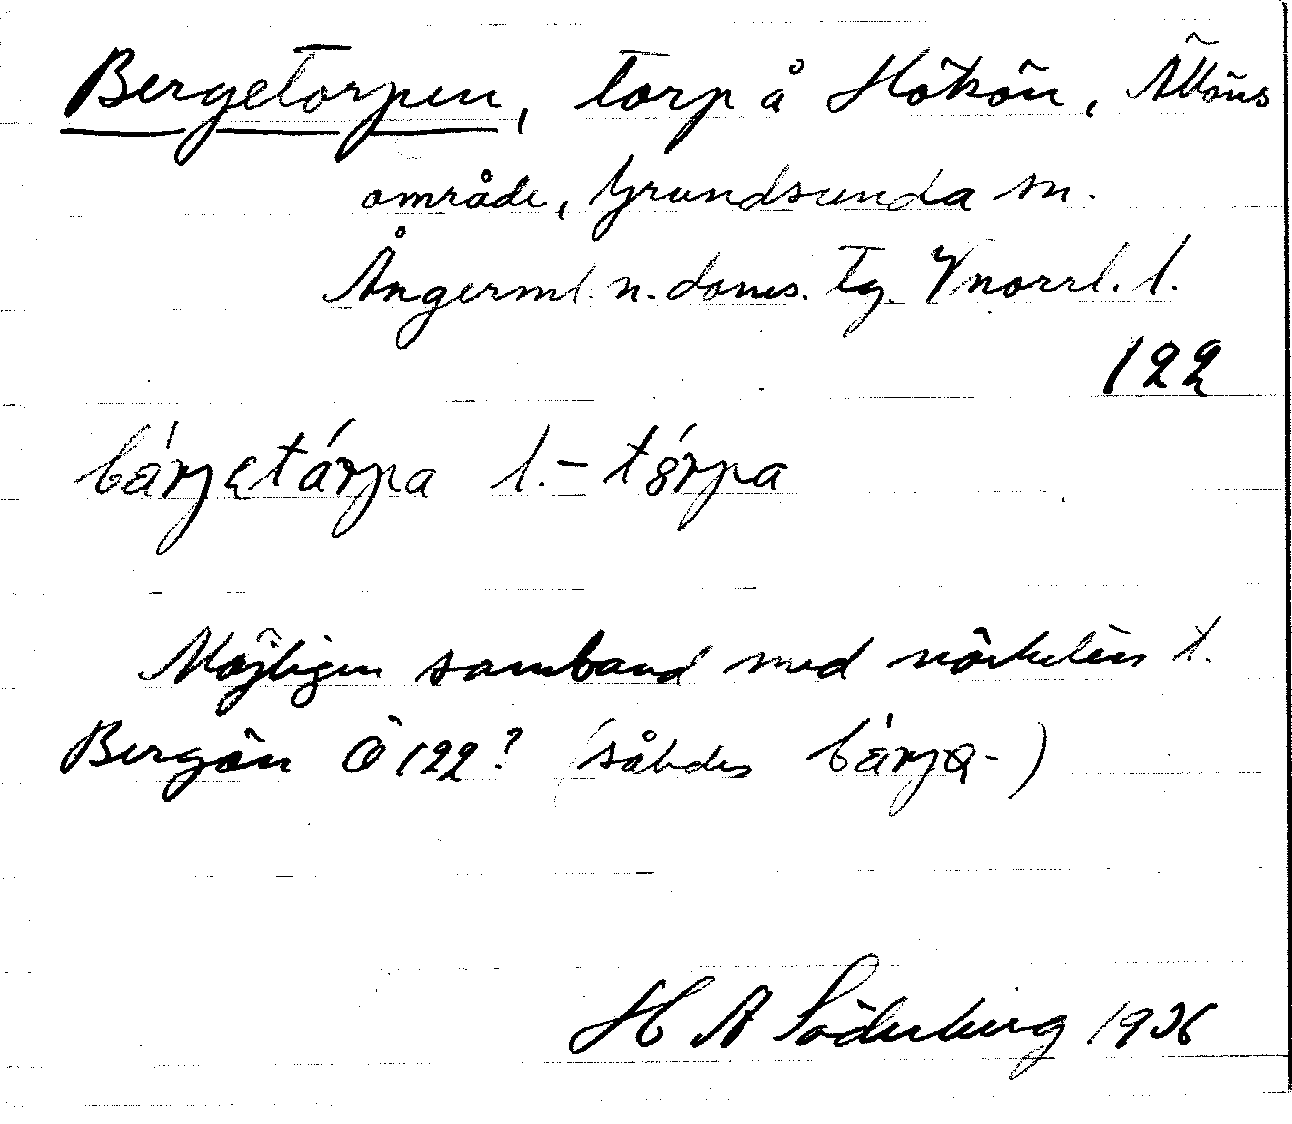 Bergetorpen, torp å Hökön,
område, Grundsunda sn.
Ångerml. n. doms. Tg. Vnorrl. l.
122
bárjetárpa l. - tórpa
Möjligen samband med nörheten t.
Bergön Ö 122? (således bárje-)
H A Söderberg 1936